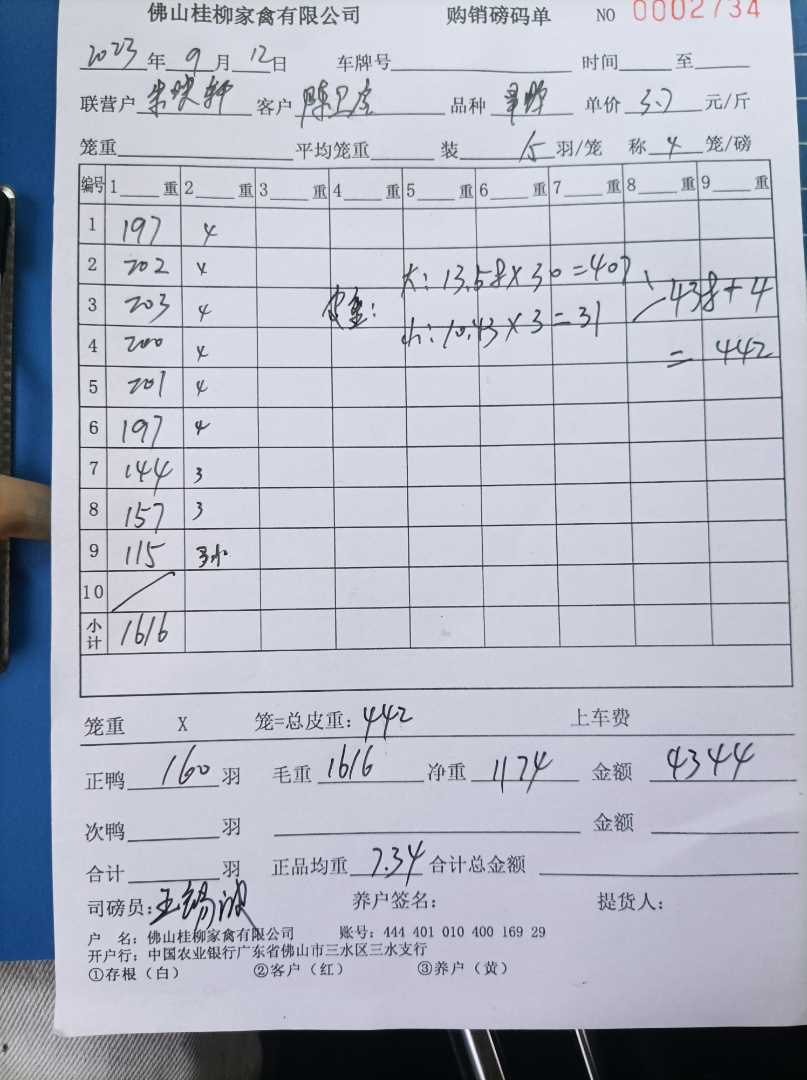 佛山桂柳家禽有限公司 购销磅码单 NO 0002734
2023年 9月 12日 车牌号 时间 至
联营户 客户 品种 单价 3.7 元/斤
笼重 平均笼重 装 15 羽/笼 称 4 笼/磅
编号 1 重 2 重 3 重 4 重 5 重 6 重 7 重 8 重 9 重
1 197 4
2 202 4 大: 13.58×30=407
3 203 4 皮重: 438+4
4 200 4 小: 10.43×3=31 =442
5 201 4
6 197 4
7 144 3
8 157 3
9 115 3小
10
小计 1616
笼重 X 笼=总皮重: 442 上车费
正鸭 160 羽 毛重 1616 净重 1174 金额 4344
次鸭 羽 金额
合计 羽 正品均重 7.34 合计总金额
司磅员: 王锡波 养户签名: 提货人:
户 名: 佛山桂柳家禽有限公司 账号: 444 401 010 400 169 29
开户行: 中国农业银行广东省佛山市三水区三水支行
①存根（白） ②客户（红） ③养户（黄）